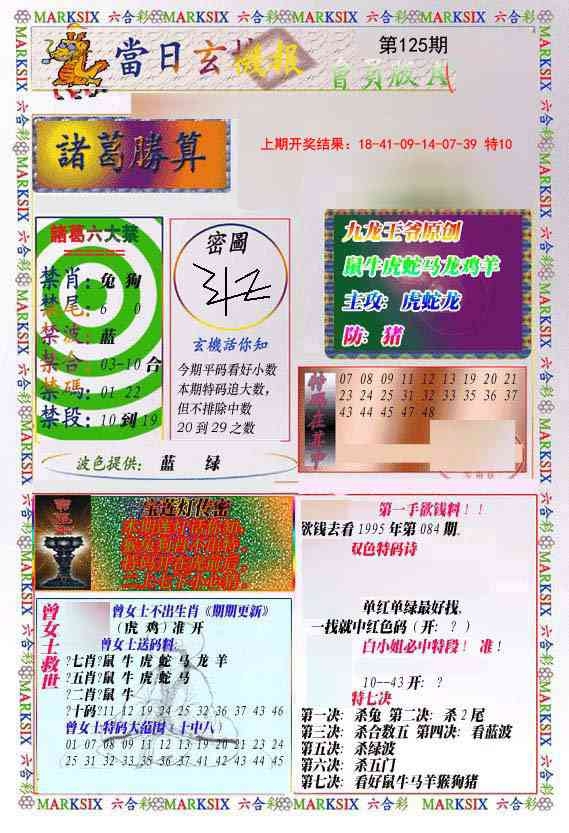 MARKSIX 六合彩 MARKSIX 六合彩 MARKSIX 六合彩 MARKSIX 六合彩 MARKSIX
當日玄機報
第125期
會員版A
諸葛勝算
上期开奖结果：18-41-09-14-07-39 特10
諸葛六大禁
禁肖：兔 狗
禁尾：6 0
禁波：蓝
禁合：03-10合
禁碼：01 22
禁段：10到19
密圖
玄機活你知
今期平码看好小数
本期特码追大数，
但不排除中数
20到29之数
九龙王爷原创
鼠牛虎蛇马龙鸡羊
主攻：虎蛇龙
防：猪
特碼在其中
07 08 09 11 12 13 19 20 21
23 24 25 31 32 33 35 36 37
43 44 45 47 48
波色提供： 蓝 绿
宝莲灯传密
第一手欲钱料！！
欲钱去看1995年第084期.
双色特码诗
单红单绿最好找.
一找就中红色码（开：？）
白小姐必中特段！ 准！
10--43开：？
特七决
第一决：杀兔 第二决：杀2尾
第三决：杀合数五 第四决：看蓝波
第五决：杀绿波
第六决：杀五门
第七决：看好鼠牛马羊猴狗猪
曾女士救世
曾女士不出生肖《期期更新》
（虎 鸡）准 开
曾女士送码料
?七肖?鼠 牛 虎 蛇 马 龙 羊
?五肖?鼠 牛 虎 蛇 马
?二肖?鼠 牛
?十码?11 12 19 24 25 32 36 37 43 46
曾女士特码大范围（十中八）
01 07 08 09 11 12 13 19 20 21 23 24
25 31 32 33 35 36 37 41 42 43 44 45
MARKSIX 六合彩 MARKSIX 六合彩 MARKSIX 六合彩 MARKSIX 六合彩 MARKSIX